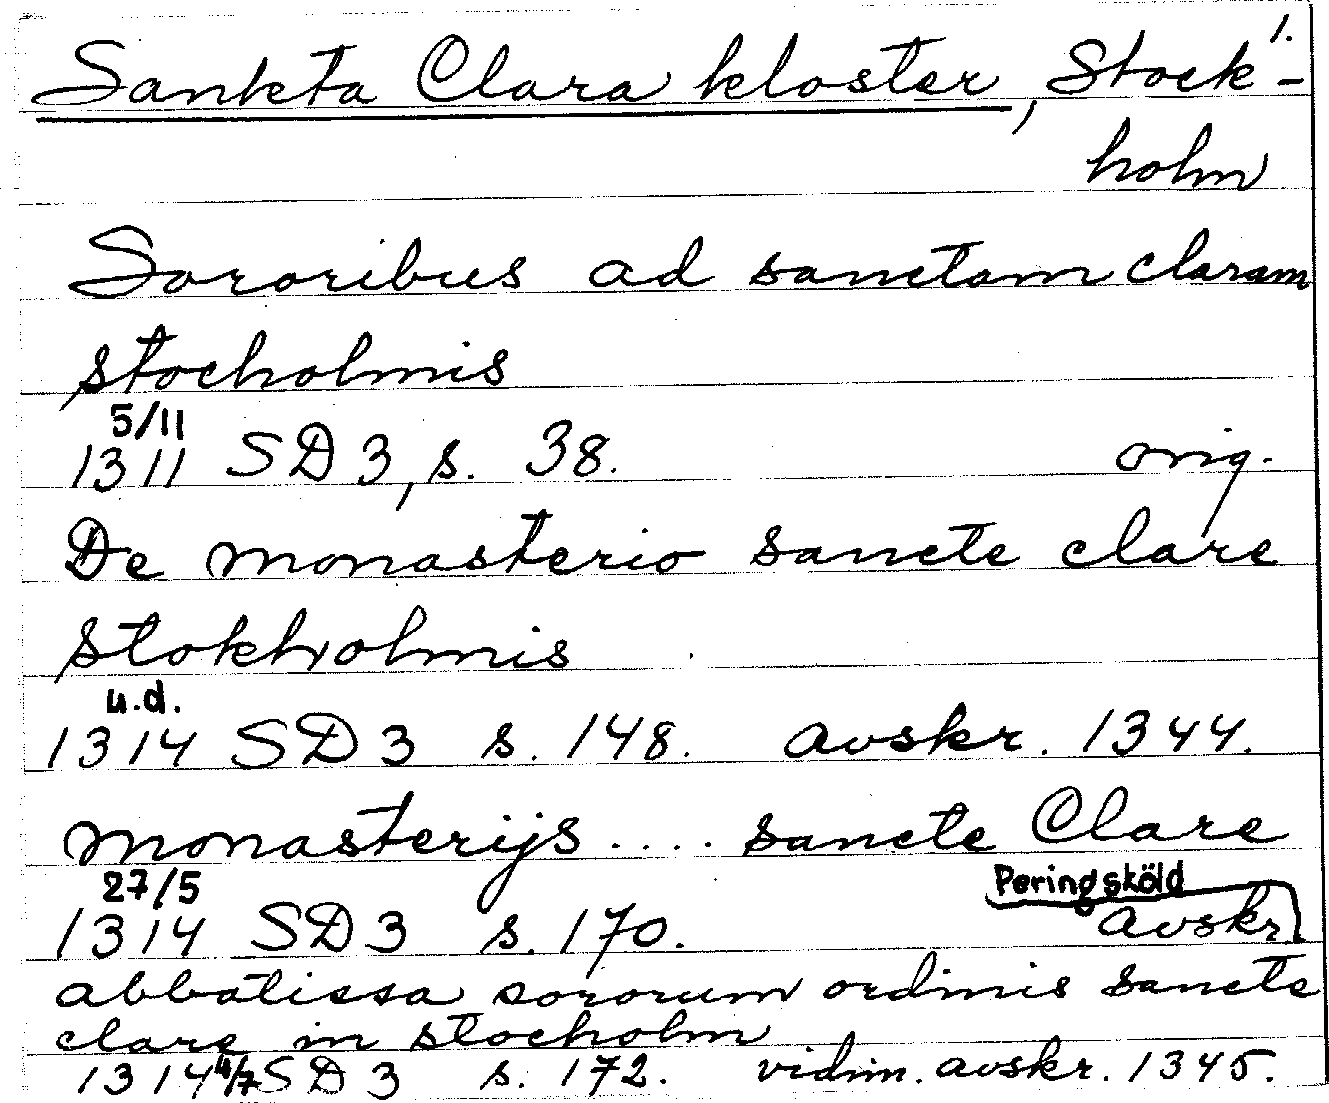 1.
Sankta Clara kloster, Stock-
holm
Sororibus ad sanctam claram
stocholmis
5/11
1311 SD 3, s. 38. orig.
De monasterio sancte clare
stokholmis
u.d.
1314 SD 3 s. 148. avskr. 1344.
monasterijs .... sancte Clare
27/5 Peringsköld
1314 SD 3 s. 170. avskr.
abbatissa sororum ordinis sancte
clare in stocholm
1314 4/7 SD 3 s. 172. vidim. avskr. 1345.